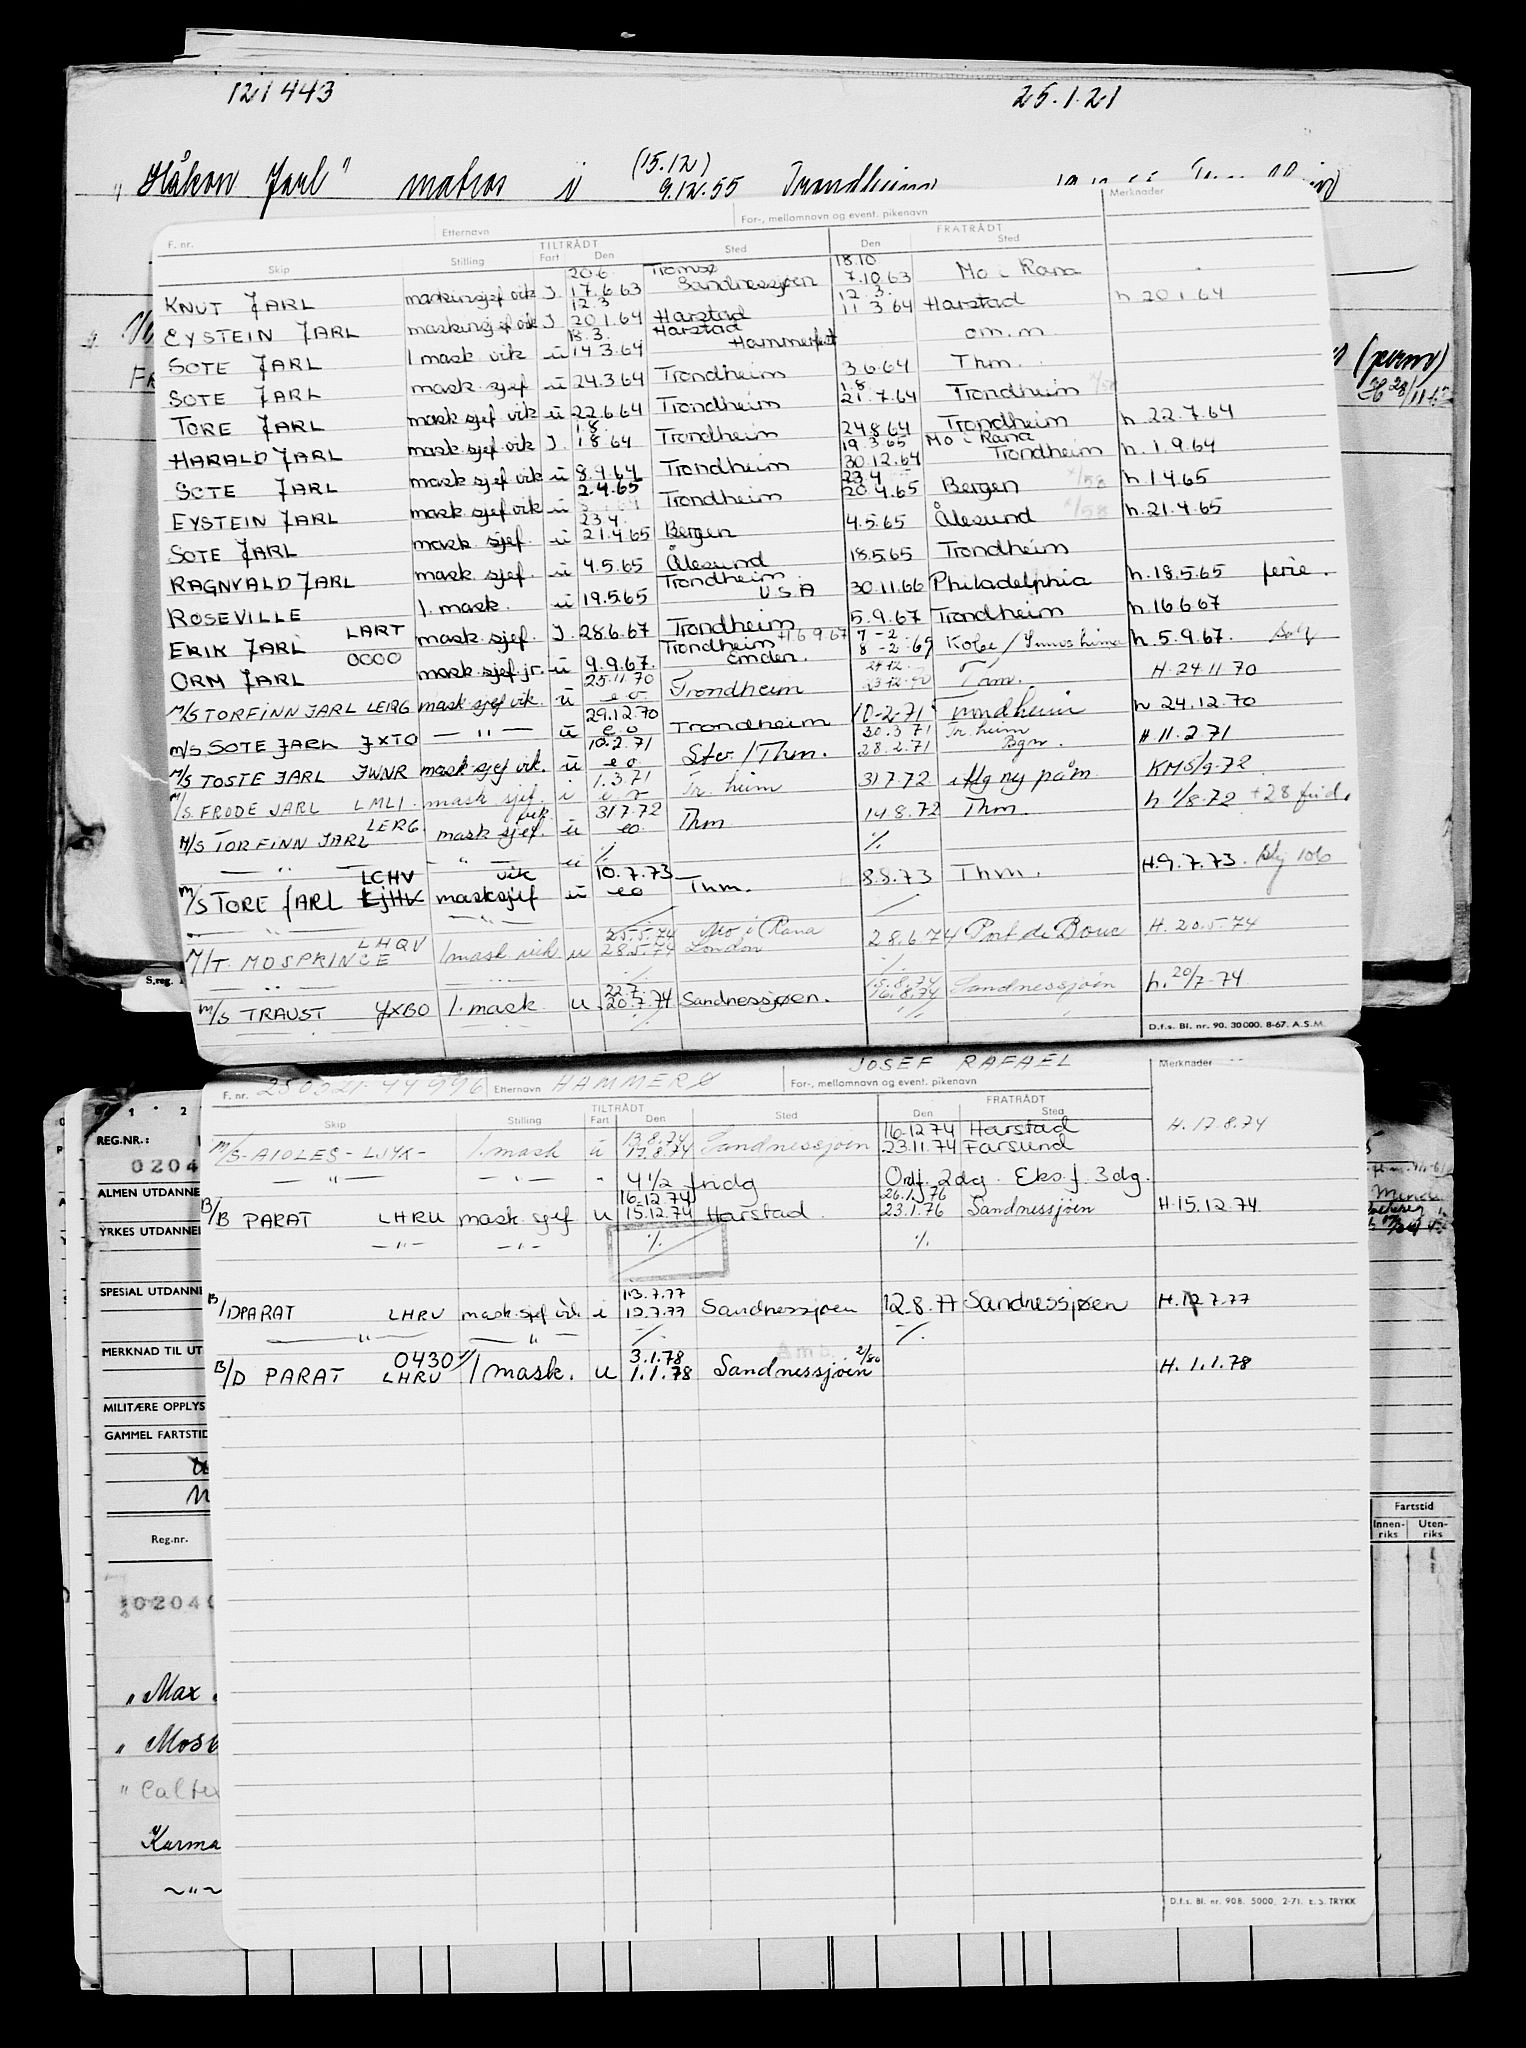 121443 25.1.21
(15.12)
"Håkon Jarl" matros u 9.12.55 Trondheim
(perm)
F. nr. Etternavn For-, mellomnavn og event. pikenavn Merknader
TILTRÅDT FRATRÅDT
Skip Stilling Fart Den Sted Den Sted
20.6 Tromsø 18.10
KNUT JARL maskinsjef vik J. 17.6.63 Sandnessjøen 7.10.63 Mo i Rana
12.3 12.3.
EYSTEIN JARL maskinsjef vik J 20.1.64 Harstad 11.3.64 Harstad h. 20.1.64
18.3. Harstad
SOTE JARL 1 mask vik u 14.3.64 Hammerfest om.m
SOTE JARL mask. sjef u 24.3.64 Trondheim 3.6.64 Thm.
1.8
TORE JARL mask sjef vik u 22.6.64 Trondheim 21.7.64 Trondheim
1.8.
HARALD JARL mask. sjef vik J. 1.8.64 Trondheim 24.8.64 Trondheim h. 22.7.64
19.3.65 Mo i Rana
SOTE JARL mask sjef vik u 8.9.64 Trondheim 30.12.64 Trondheim h. 1.9.64
2.4.65 23.4
EYSTEIN JARL mask. sjef vik u Trondheim 20.4.65 Bergen h. 1.4.65
23.4.
SOTE JARL mask sjef. u 21.4.65 Bergen 4.5.65 Ålesund h. 21.4.65
RAGNVALD JARL mask sjef. u 4.5.65 Ålesund 18.5.65 Trondheim
Trondheim
ROSEVILLE 1. mask. u 19.5.65 U.S.A 30.11.66 Philadelphia h. 18.5.65 ferie.
ERIK JARL LART mask. sjef. J. 28.6.67 Trondheim 5.9.67 Trondheim h. 16.6.67
Trondheim 7-2
ORM JARL OCOO mask. sjef. jr. u 9.9.67. Emden. 8-2-69 Kobe h. 5.9.67.
25.11.70
M/S TORFINN JARL LERG mask sjef vik. u e o Trondheim Thm. H. 24.11.70
29.12.70
M/S SOTE JARL JXTO — " — u e o Trondheim 10-2-71 Trondheim h 24.12.70
10.2.71 20.3.71 Tr.heim
M/S TOSTE JARL JWNR mask sjef vik. u e o Sto/Thm. 28.2.71 Bgn. H. 11.2.71
1.3.71
M/S. FRODE JARL LMLI. mask sjef. i Tr.heim 31.7.72 Mg ny påm KM 5/9-72
vik 31.7.72
M/S TORFINN JARL LERG mask sjef. u eo Thm 14.8.72 Thm. h 1/8.72 + 28 frid.
— " — " — ·/. ·/.
LCHV vik 10.7.73
M/S TORE JARL LJHV mask sjef u eo Thm. 8.8.73 Thm. H. 9.7.73.
25.5.74 Mo i Rana
M/T MOSPRINCE LHQV 1 mask vik u 28.5.74 London 28.6.74 Port de Bouc H. 20.5.74
22.7. 15.8.74
M/S TRAUST JXBO 1. mask u 20.7.74 Sandnessjøen. 16.8.74 Sandnessjøen h. 20/7-74
D.f.s. Bl. nr. 90. 30000. 8-67. A.S.M.
S.reg.
JOSEF RAFAEL
F. nr. 250321 44996 Etternavn HAMMERØ For-, mellomnavn og event. pikenavn Merknader
TILTRÅDT FRATRÅDT
Skip Stilling Fart Den Sted Den Sted
13.8.74 16.12.74 Harstad
M/S-AIOLES-LJYX- 1. mask u 17.8.74 Sandnessjøen 23.11.74 Farsund H. 17.8.74
— " — — " — 4 1/2 fridg Ordf. 2dg. Eks f. 3dg.
16.12.74 26.1.76
B/B PARAT LHRU mask. sjef u 15.12.74 Harstad 23.1.76 Sandnessjøen H. 15.12.74
— " — — " — ·/. ·/.
13.7.77
B/D PARAT LHRU mask. sjef vik i 12.7.77 Sandnessjøen 12.8.77 Sandnessjøen H. 12.7.77
— " — — " — ·/. ·/.
0430 3.1.78 Amb. 2/80
B/D PARAT LHRU 1 mask. u 1.1.78 Sandnessjøen H. 1.1.78
D.f.s. Bl. nr. 90B. 5000. 2-71. E.S. TRYKK
REG.NR.:
0204
ALMEN UTDANNE
YRKES UTDANNEL
SPESIAL UTDANNE
MERKNAD TIL UT
MILITÆRE OPPLYS
GAMMEL FARTSTID
Reg.nr.
Fartstid
Innenriks Utenriks
102040
" Max
" Mosv
" Calte
Karma
~"~